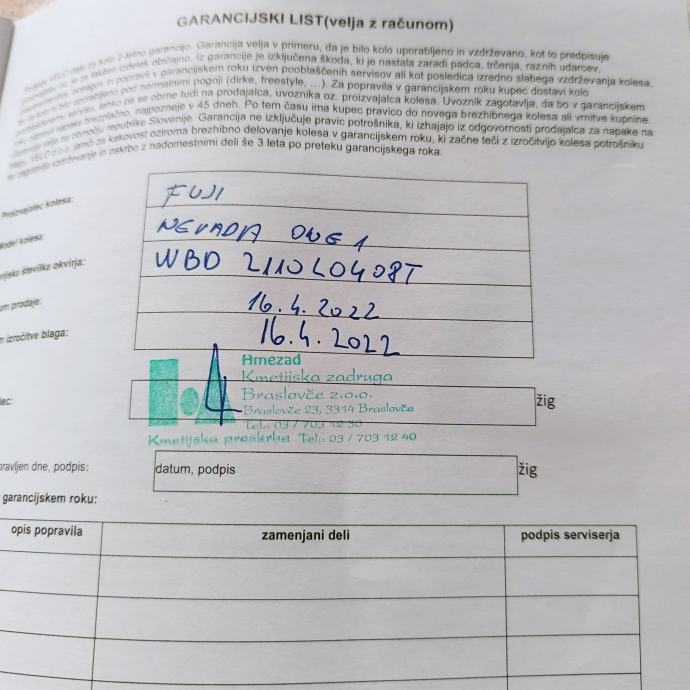 GARANCIJSKI LIST(velja z računom)
za kolo 2-letno garancijo. Garancija velja v primeru, da je bilo kolo uporabljeno in vzdrževano, kot to predpisuje
izdelek običajno. Iz garancije je izključena škoda, ki je nastala zaradi padca, trčenja, raznih udarcev,
in popravil v garancijskem roku izven pooblaščenih servisov ali kot posledica izredno slabega vzdrževanja kolesa,
pod normalnimi pogoji (dirke, freestyle, ...). Za popravila v garancijskem roku kupec dostavi kolo
lahko pa se obrne tudi na prodajalca, uvoznika oz. proizvajalca kolesa. Uvoznik zagotavlja, da bo v garancijskem
napake brezplačno, najpozneje v 45 dneh. Po tem času ima kupec pravico do novega brezhibnega kolesa ali vrnitve kupnine.
na območju republike Slovenije. Garancija ne izključuje pravic potrošnika, ki izhajajo iz odgovornosti prodajalca za napake na
jamči za kakovost oziroma brezhibno delovanje kolesa v garancijskem roku, ki začne teči z izročitvijo kolesa potrošniku
vzdrževanje in oskrbo z nadomestnimi deli še 3 leta po preteku garancijskega roka.
Proizvajalec kolesa: FUJI
Model kolesa: NEVADA ONE 1
številka okvirja: WBD 2110L0408T
prodaje: 16.4.2022
izročitve blaga: 16.4.2022
Hmezad
Kmetijska zadruga
Braslovče z.o.o.
Braslovče 23, 3314 Braslovče
žig
Tel.: 03 / 703 12 30
Kmetijska preskrba Tel.: 03 / 703 12 40
dne, podpis: datum, podpis žig
garancijskem roku:
opis popravila zamenjani deli podpis serviserja